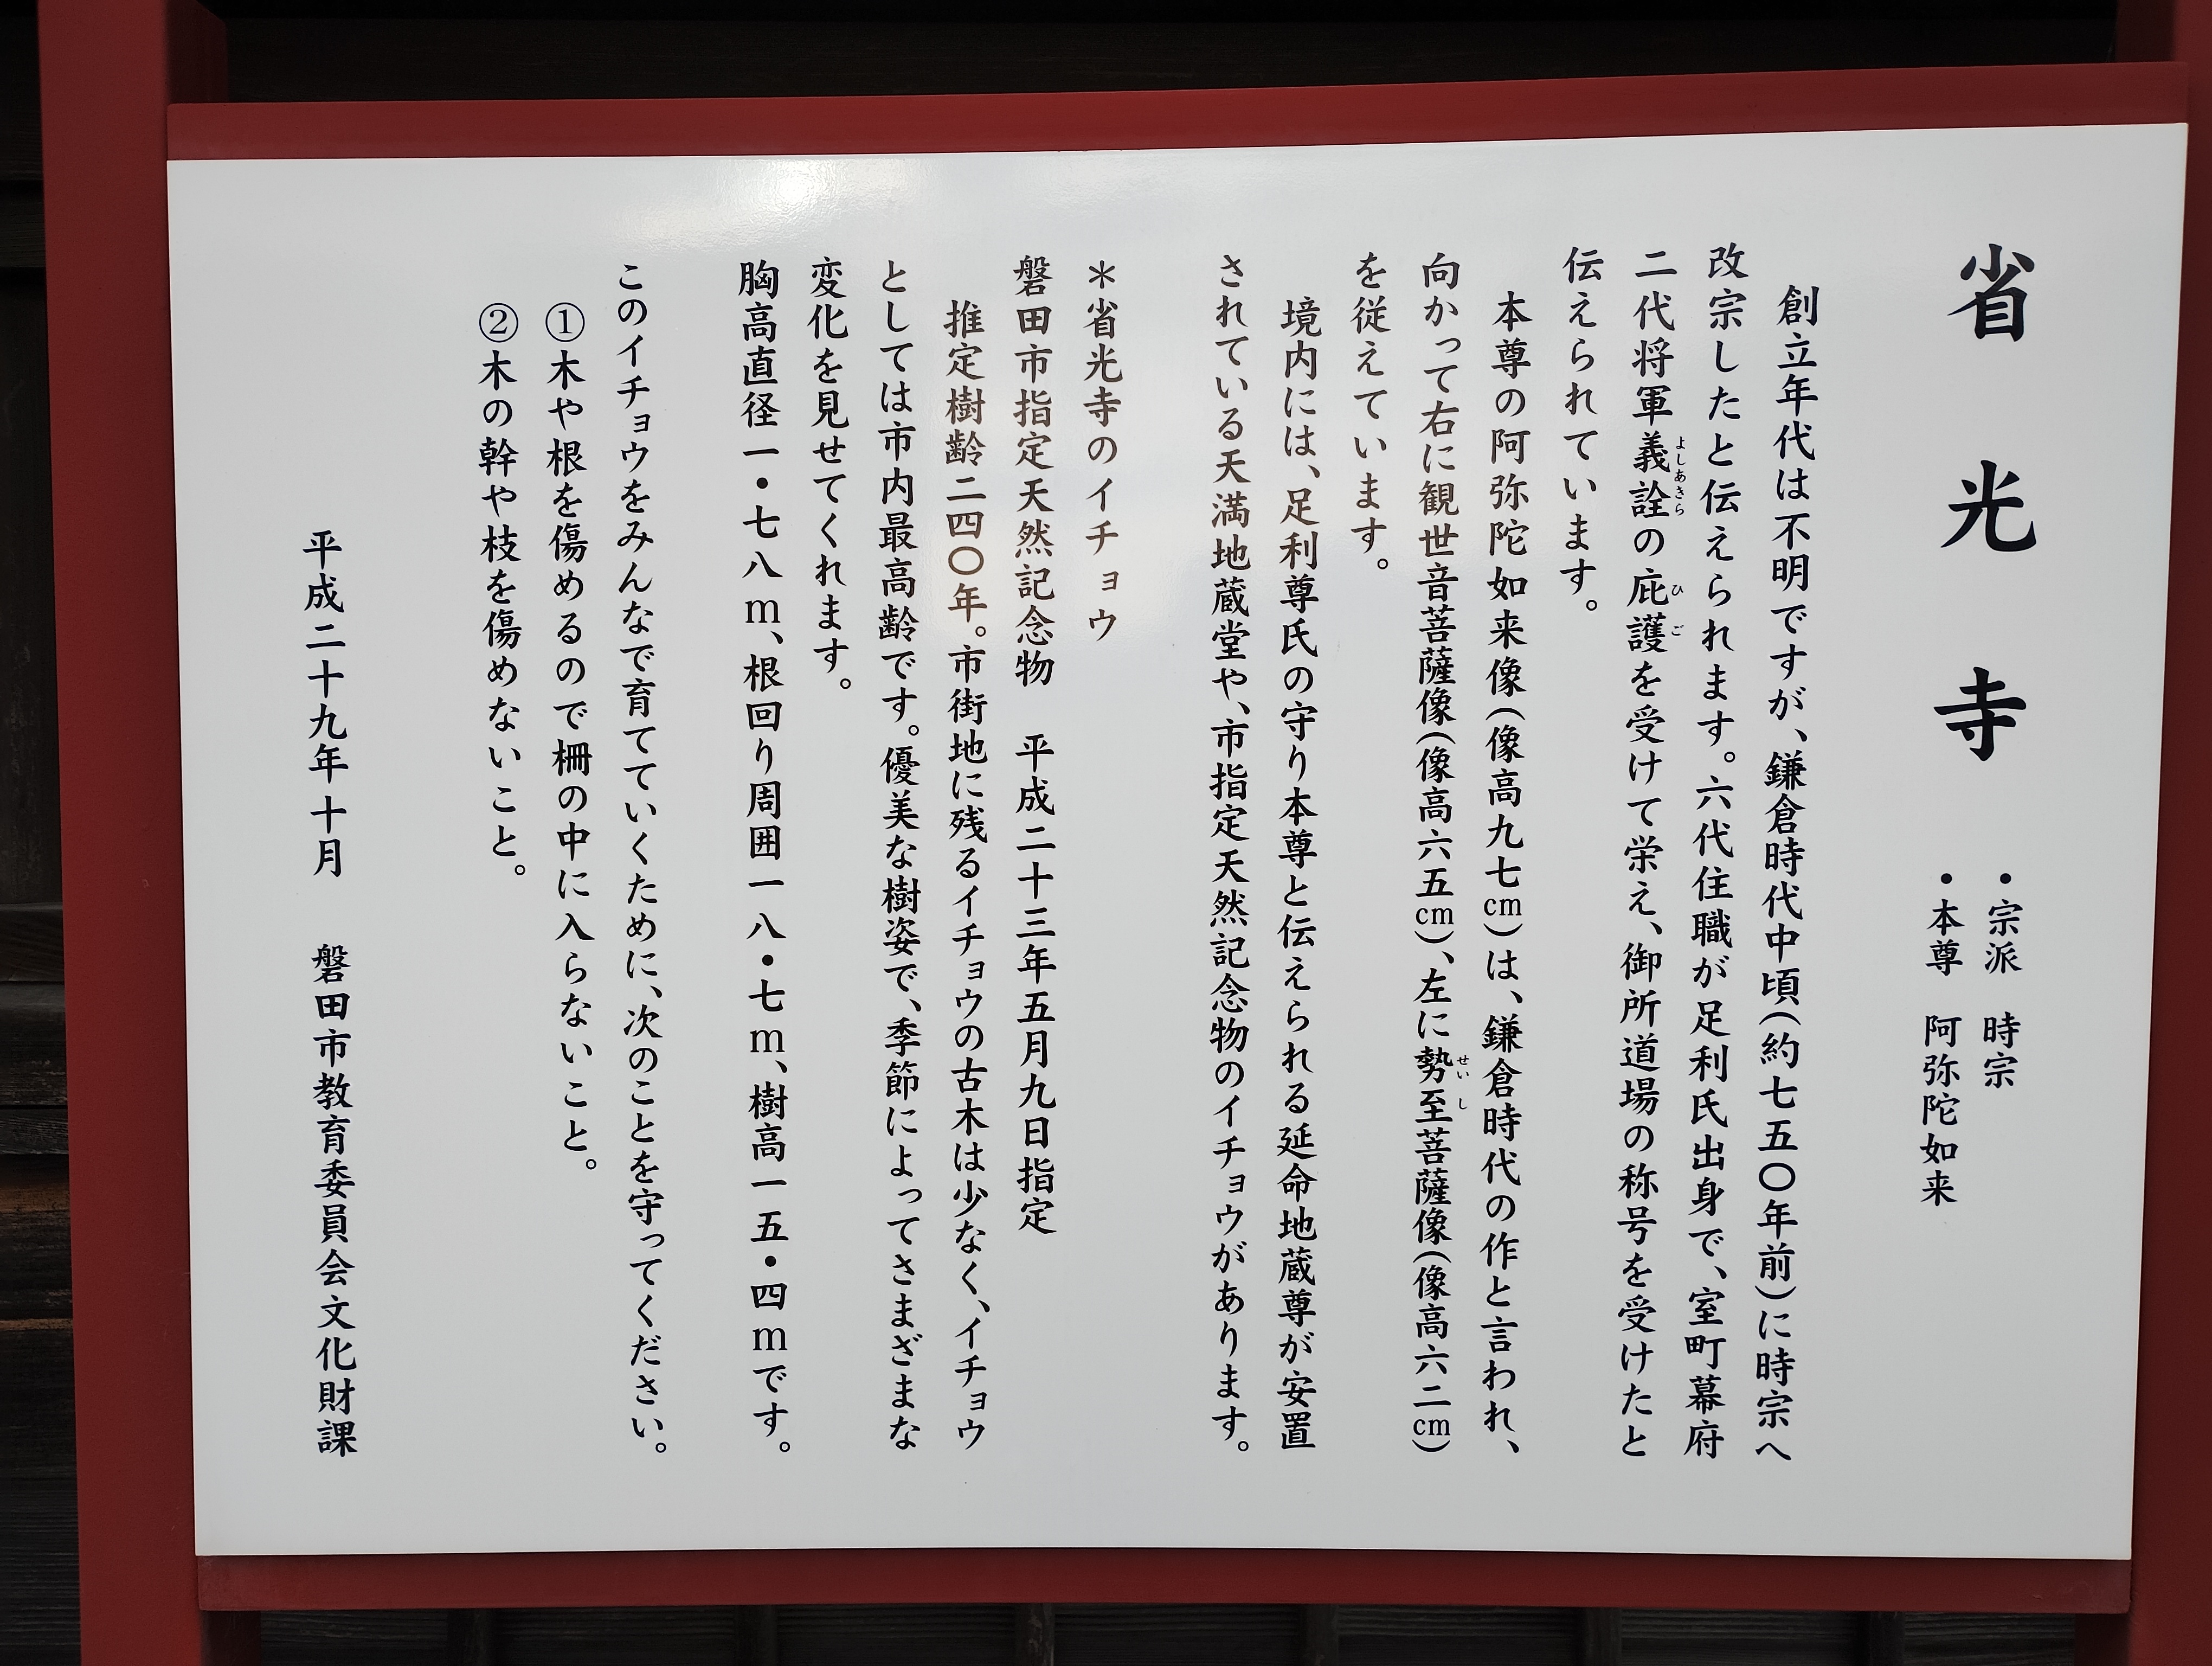 省光寺
・宗派　時宗
・本尊　阿弥陀如来
創立年代は不明ですが、鎌倉時代中頃(約七五〇年前)に時宗へ
改宗したと伝えられます。六代住職が足利氏出身で、室町幕府
二代将軍義詮の庇護を受けて栄え、御所道場の称号を受けたと
よしあきら
ひご
伝えられています。
本尊の阿弥陀如来像(像高九七cm)は、鎌倉時代の作と言われ、
向かって右に観世音菩薩像(像高六五cm)、左に勢至菩薩像(像高六二cm)
せいし
を従えています。
境内には、足利尊氏の守り本尊と伝えられる延命地蔵尊が安置
されている天満地蔵堂や、市指定天然記念物のイチョウがあります。
＊省光寺のイチョウ
磐田市指定天然記念物　平成二十三年五月九日指定
推定樹齢二四〇年。市街地に残るイチョウの古木は少なく、イチョウ
としては市内最高齢です。優美な樹姿で、季節によってさまざまな
変化を見せてくれます。
胸高直径一・七八m、根回り周囲一八・七m、樹高一五・四mです。
このイチョウをみんなで育てていくために、次のことを守ってください。
①木や根を傷めるので柵の中に入らないこと。
②木の幹や枝を傷めないこと。
平成二十九年十月　磐田市教育委員会文化財課